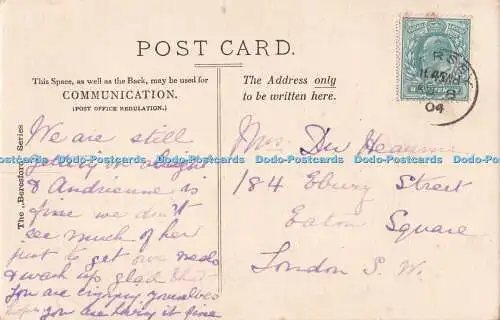 POST CARD.
This Space, as well as the Back, may be used for
COMMUNICATION.
(POST OFFICE REGULATION.)
The Address only
to be written here.
The "Beresford" Series
We are still
& Andrienne is
fine we don't
see much of her
just to get our meals
& wash up glad that
you are enjoying yourselves
hope you are having it fine
Mrs. Du Heaume
184 Ebury Street
Eaton Square
London S. W.
04
Dodo-Postcards.com Dodo-Postcards.com Dodo-Postcards.com Dodo-Postcards.com Dodo-Postcards.com